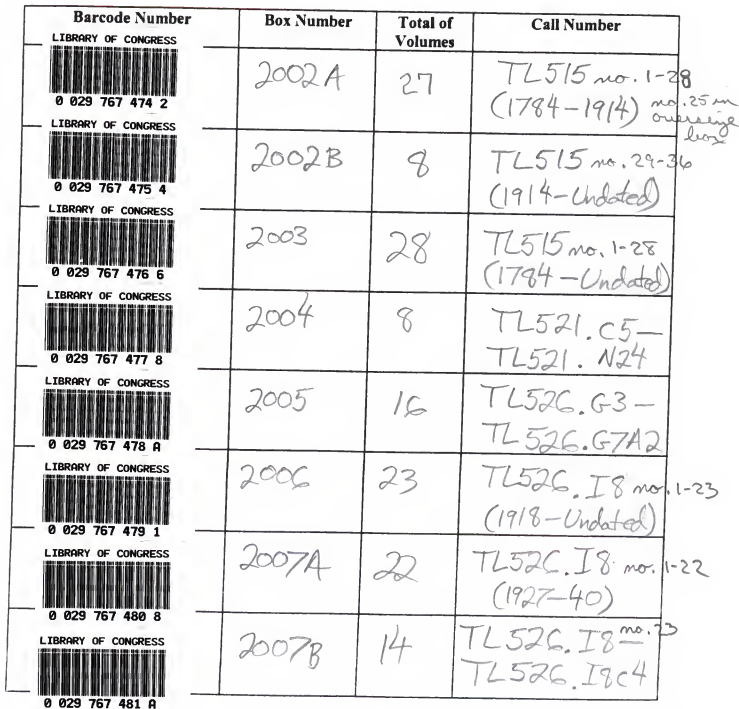 Barcode Number Box Number Total of Volumes Call Number
LIBRARY OF CONGRESS
0 029 767 474 2
2002A
27
TL515 no. 1-28
(1784-1914) no. 25 in
oversize
box
LIBRARY OF CONGRESS
0 029 767 475 4
2002B
8
TL515 no. 29-36
(1914-Undated)
LIBRARY OF CONGRESS
0 029 767 476 6
2003
28
TL515 no. 1-28
(1784-Undated)
LIBRARY OF CONGRESS
0 029 767 477 8
2004
8
TL521.C5—
TL521.N24
LIBRARY OF CONGRESS
0 029 767 478 A
2005
16
TL526.G3—
TL526.G7A2
LIBRARY OF CONGRESS
0 029 767 479 1
2006
23
TL526.I8 no. 1-23
(1918-Undated)
LIBRARY OF CONGRESS
0 029 767 480 8
2007A
22
TL526.I8 no. 1-22
(1927-40)
LIBRARY OF CONGRESS
0 029 767 481 A
2007B
14
TL526.I8 no. 23—
TL526.I8C4